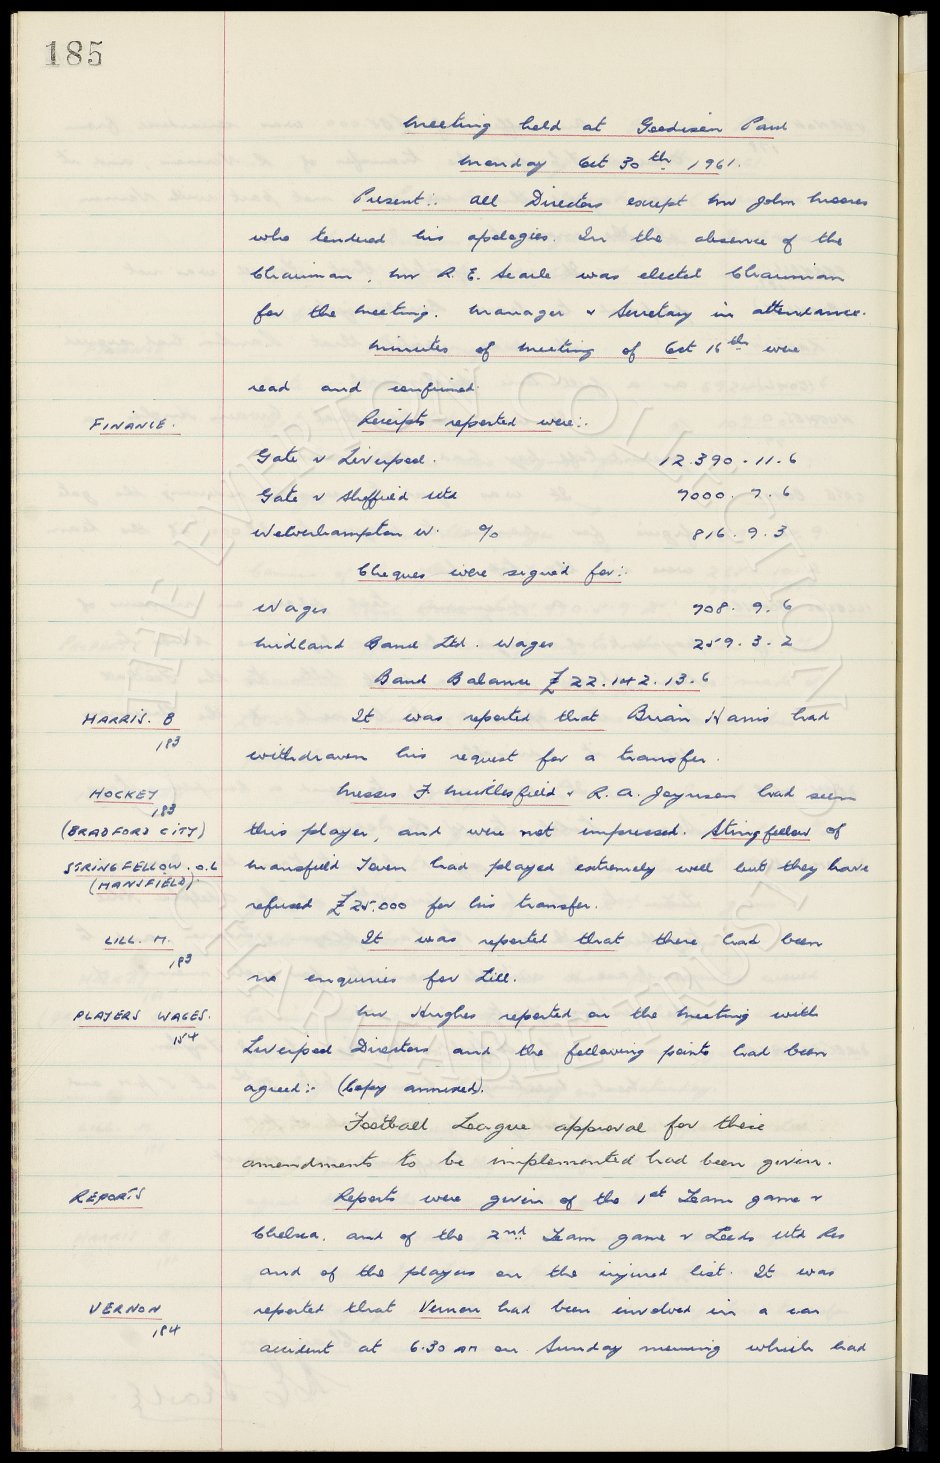 185
Meeting held at Goodison Park
Monday Oct 30th 1961.
Present:. All Directors except Mr John Moores
who tendered his apologies. In the absence of the
Chairman, Mr R. E. Searle was elected Chairman
for the meeting. Manager & Secretary in attendance.
Minutes of meeting of Oct 16th were
read and confirmed.
FINANCE. Receipts reported were:.
Gate v Liverpool. 12.390.11.6
Gate v Sheffield Utd 7000.7.6
Wolverhampton W. % 816.9.3
Cheques were signed for:.
Wages 708.9.6
Midland Bank Ltd. Wages 259.3.2
Bank Balance £22.142.13.6
HARRIS. B It was reported that Brian Harris had
183 withdrawn his request for a transfer.
HOCKEY Messrs F. Micklesfield & R. A. Joynson had seen
183
(BRADFORD CITY) this player, and were not impressed. Stringfellow of
STRINGFELLOW. O.L Mansfield Town had played extremely well but they have
(MANSFIELD).
refused £25.000 for his transfer.
LILL. M. It was reported that there had been
183 no enquiries for Lill.
PLAYERS WAGES. Mr Hughes reported on the meeting with
154 Liverpool Directors and the following points had been
agreed:- (Copy annexed).
Football League approval for these
amendments to be implemented had been given.
REPORTS Reports were given of the 1st Team game v
Chelsea. and of the 2nd Team game v Leeds Utd Res
and of the players on the injured list. It was
VERNON reported that Vernon had been involved in a car
184 accident at 6.30 am on Sunday morning which had